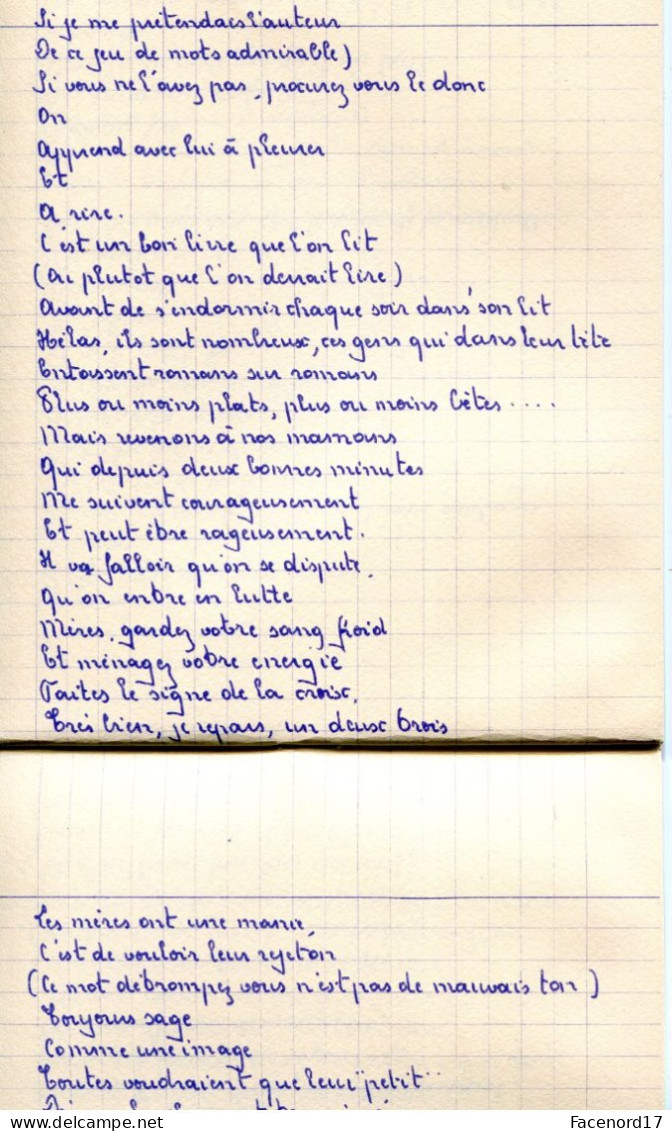 Si je me prétendais l'auteur
De ce jeu de mots admirable)
Si vous ne l'avez pas, procurez vous le donc
On
Apprend avec lui à pleurer
Et
A rire.
C'est un bon livre que l'on lit
(Ou plutot que l'on devrait lire)
Avant de s'endormir chaque soir dans son lit
Hélas, ils sont nombreux, ces gens qui dans leur tête
Entassent romans sur romans
Plus ou moins plats, plus ou moins bêtes....
Mais revenons à nos mamans
Qui depuis deux bonnes minutes
Me suivent courageusement
Et peut être rageusement.
Il va falloir qu'on se dispute,
Qu'on entre en lutte
Mères, gardez votre sang froid
Et ménagez votre energie
Faites le signe de la croix,
Très bien, je repars, un deux trois
Les mères ont une manie,
C'est de vouloir leur rejeton
(Ce mot détrompez vous n'est pas de mauvais ton)
Toujours sage
Comme une image
Toutes voudraient que leur "petit"
Facenord17